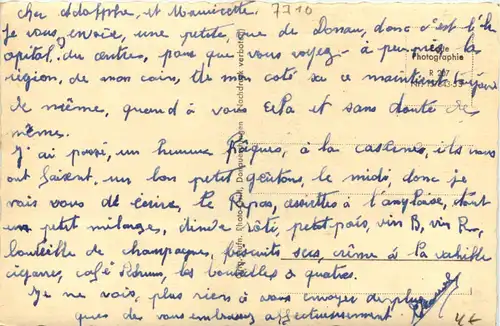 cher Adolphe, et Mauricette. 7710
Je vous envoie, une petite, vue de Donau, donc c'est l'h
opital, du centre, pour que vous voyez à peu près, la
région, de mon coin, de mon coté sa ce maintient toujours
de même, quand à vous cela et sans doute de
même.
J'ai passé, un heureux Paques, à la caserne, ils nous
ont faisent, un bon petit geutons, le midi, donc je
vais vous de ecrire, le Repas, assiettes à l'anglaise, tout
un petit mélange, dinde rôti, petit pois, vin B, vin R,
bouteille de champagne, biscuits secs, crème à la vanille
cigares, café Rhum, les bouteilles à quatres.
Je ne vois, plus rien à vous envoyer de plus
que de vous embrasser affectueusement.
Echte
Photographie
R 207
Nachdruck verboten
4€